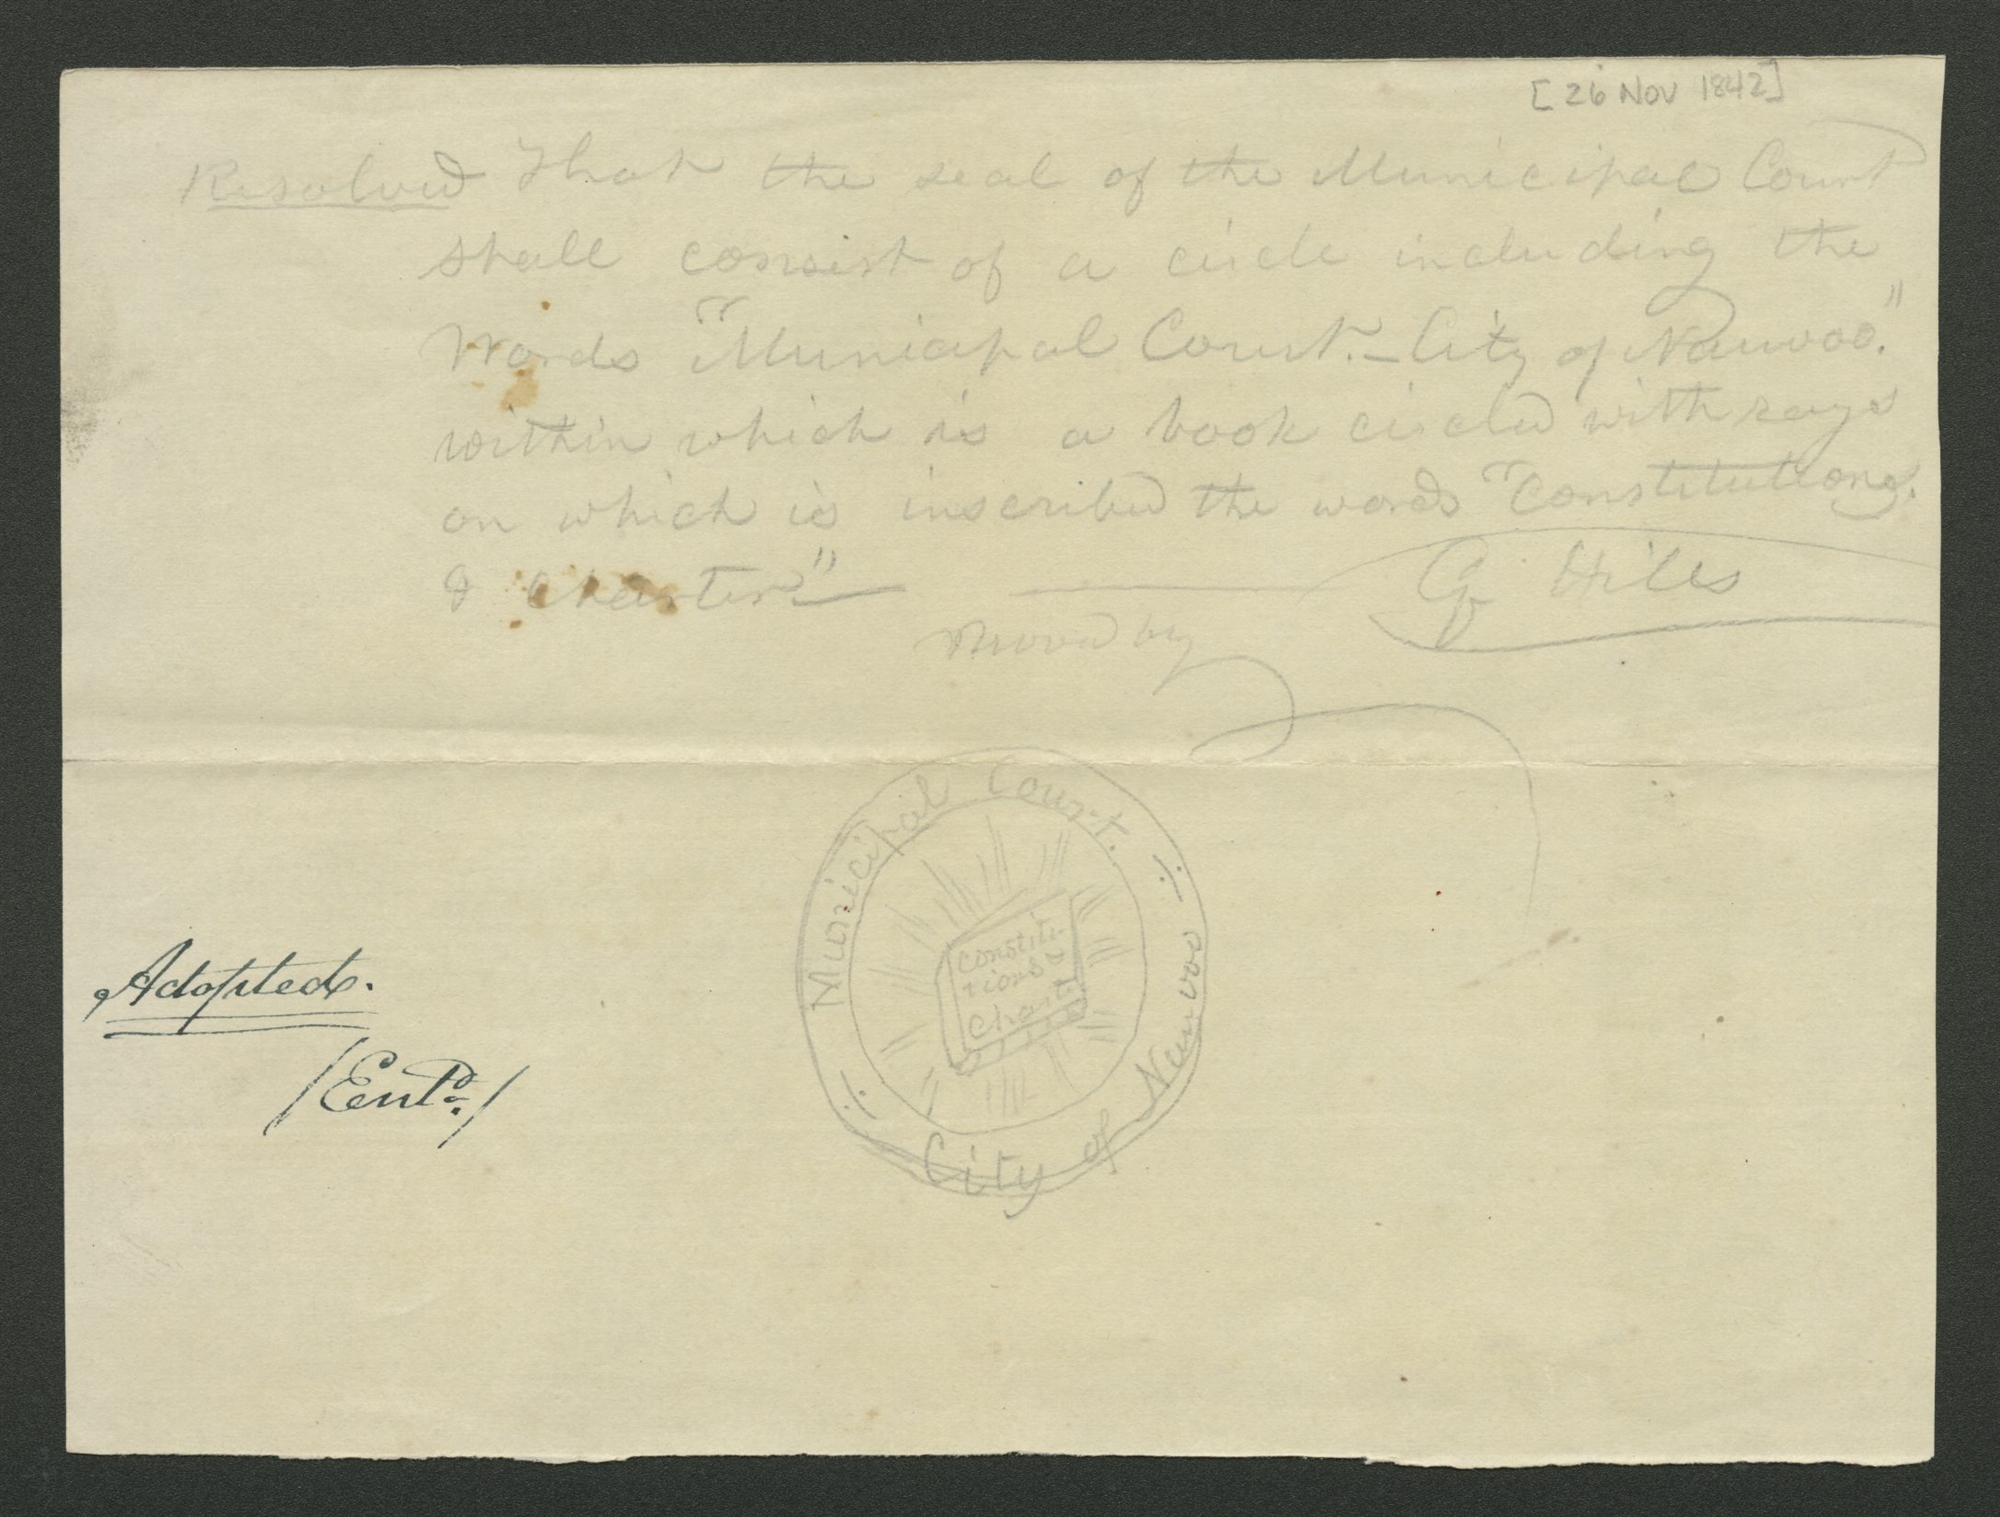 [26 Nov 1842]
Resolved That the seal of the Municipal Court
shall consist of a circle including the
Words "Municipal Court.– City of Nauvoo."
within which is a book circled with rays
on which is inscribed the words "Constitutions.
& Charters"
G Hiles
Moved by
Municipal Court.
Constitu-
tions &
Chart.
City of Nauvoo
Adopted.
/Entd./